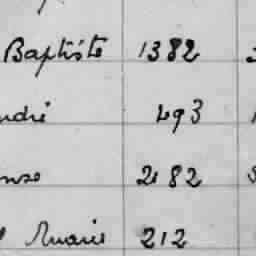 Baptiste 1382
ndré 493
onse 2182
Marie 212